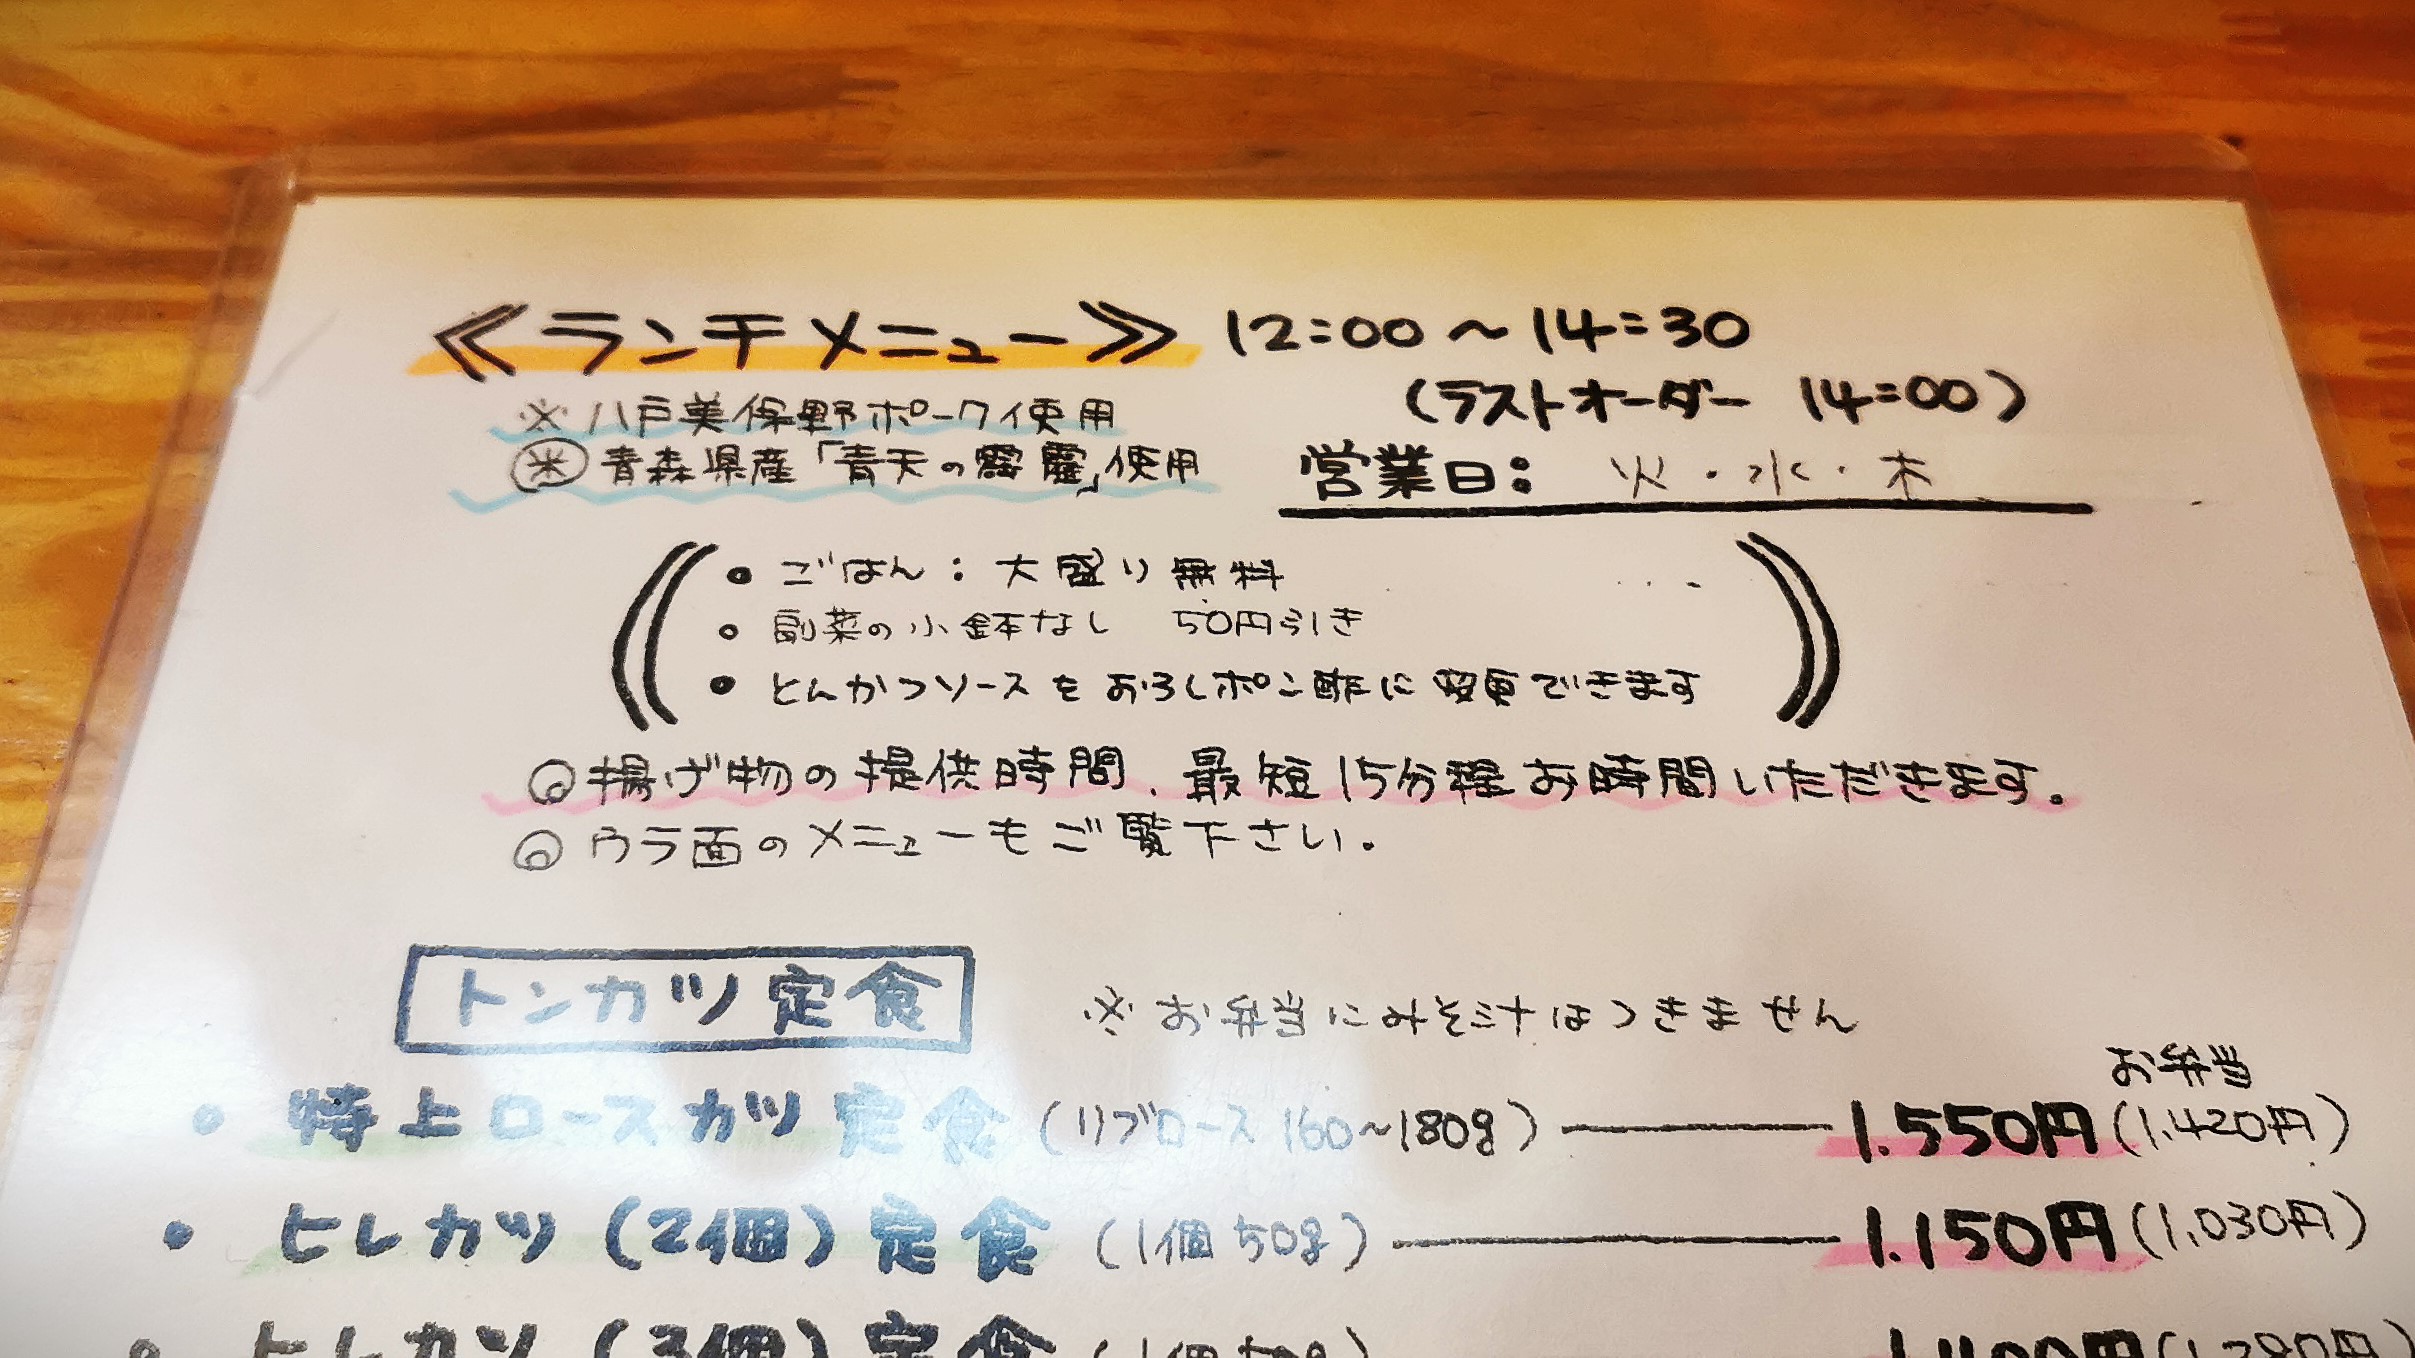 ≪ランチメニュー≫ 12:00～14:30
(ラストオーダー 14:00)
※八戸美保野ポーク使用
㊍青森県産「青天の霹靂」使用
営業日: 火・水・木
• ごはん: 大盛り無料
• 副菜の小鉢なし 50円引き
• とんかつソースをおろしポン酢に変更できます
◎揚げ物の提供時間、最短15分程お時間いただきます。
◎ウラ面のメニューもご覧下さい。
トンカツ定食
※お弁当にみそ汁はつきません
お弁当
• 特上ロースカツ定食 (リブロース 160～180g) 1.550円 (1.420円)
• ヒレカツ(2個)定食 (1個50g) 1.150円 (1.030円)
• ヒレカツ(3個)定食 (1個50g)